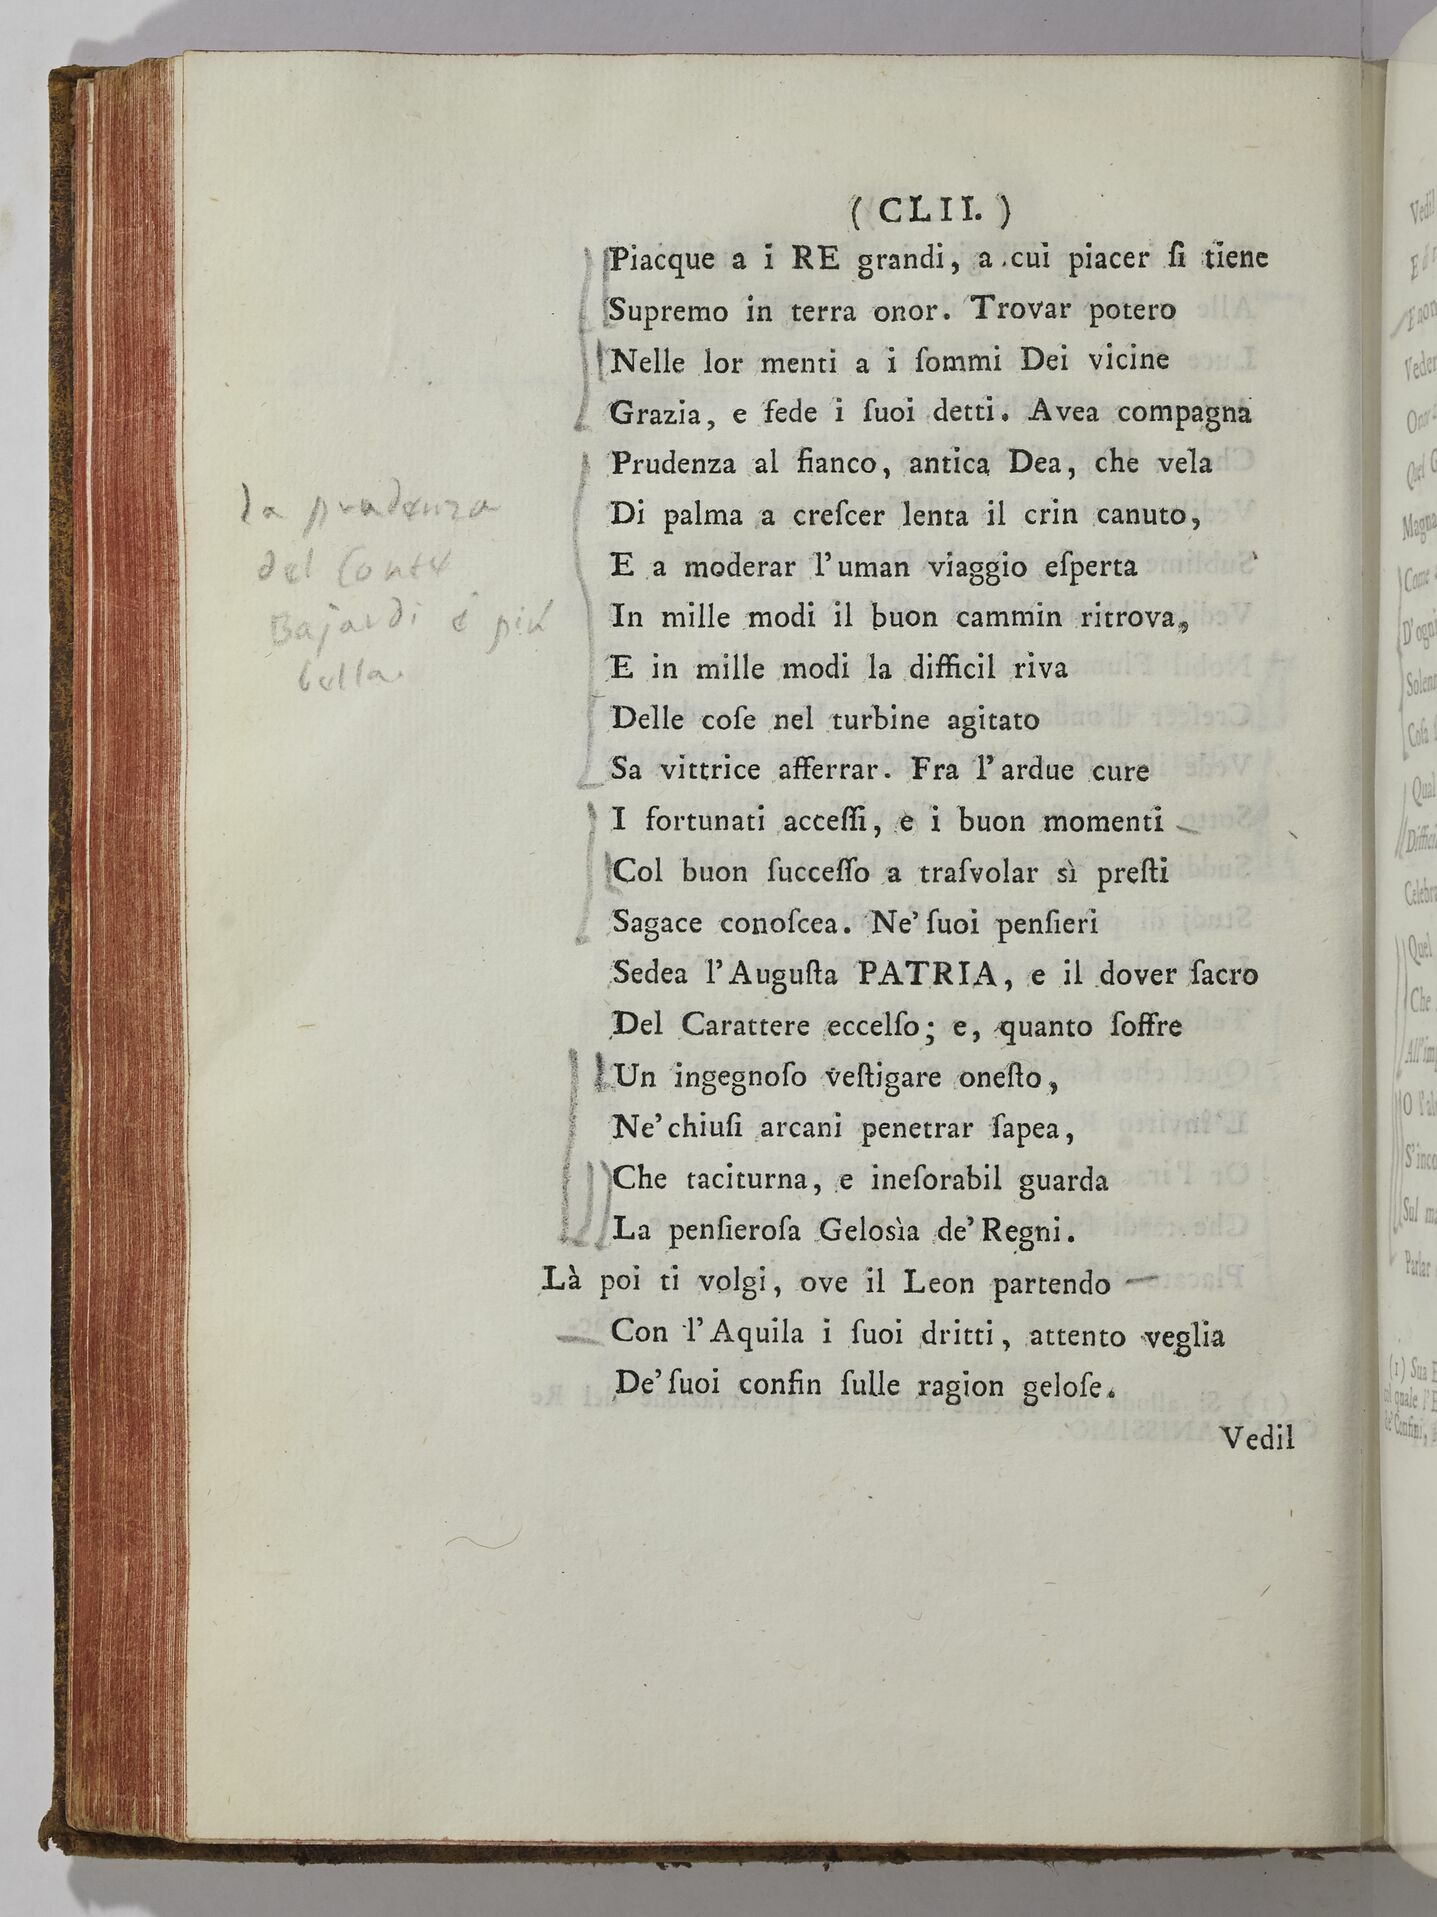 ( CLII. )
Piacque a i RE grandi, a cui piacer ſi tiene
Supremo in terra onor. Trovar potero
Nelle lor menti a i ſommi Dei vicine
Grazia, e fede i ſuoi detti. Avea compagna
Prudenza al fianco, antica Dea, che vela
Di palma a creſcer lenta il crin canuto,
E a moderar l'uman viaggio eſperta
In mille modi il buon cammin ritrova,
E in mille modi la difficil riva
Delle coſe nel turbine agitato
Sa vittrice afferrar. Fra l'ardue cure
I fortunati acceſſi, e i buon momenti
Col buon ſucceſſo a traſvolar sì preſti
Sagace conoſcea. Ne' ſuoi penſieri
Sedea l'Auguſta PATRIA, e il dover ſacro
Del Carattere eccelſo; e, quanto ſoffre
Un ingegnoſo veſtigare oneſto,
Ne' chiuſi arcani penetrar ſapea,
Che taciturna, e ineſorabil guarda
La penſieroſa Gelosìa de' Regni.
Là poi ti volgi, ove il Leon partendo
Con l'Aquila i ſuoi dritti, attento veglia
De' ſuoi confin ſulle ragion geloſe.
Vedil
la prudenza
del Conte
Bajardi è più
bella.
Magna
Come
D'ogni
Qual
Celebra
Quel
Che
Parlar
(1) Sua E
quale l'E
de' Confini,